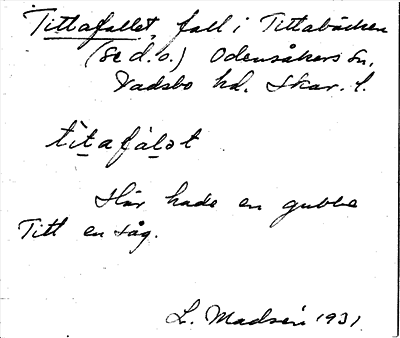 Tittafallet, fall i Tittabäcken
(se d.o.) Odensåkers sn,
Vadsbo hd. Skar. l.
tìtafàlət
Här hade en gubbe
Titt en såg.
L. Madsén 1931